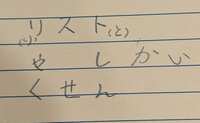 リスト(と)
(い)
や しかい
くせん